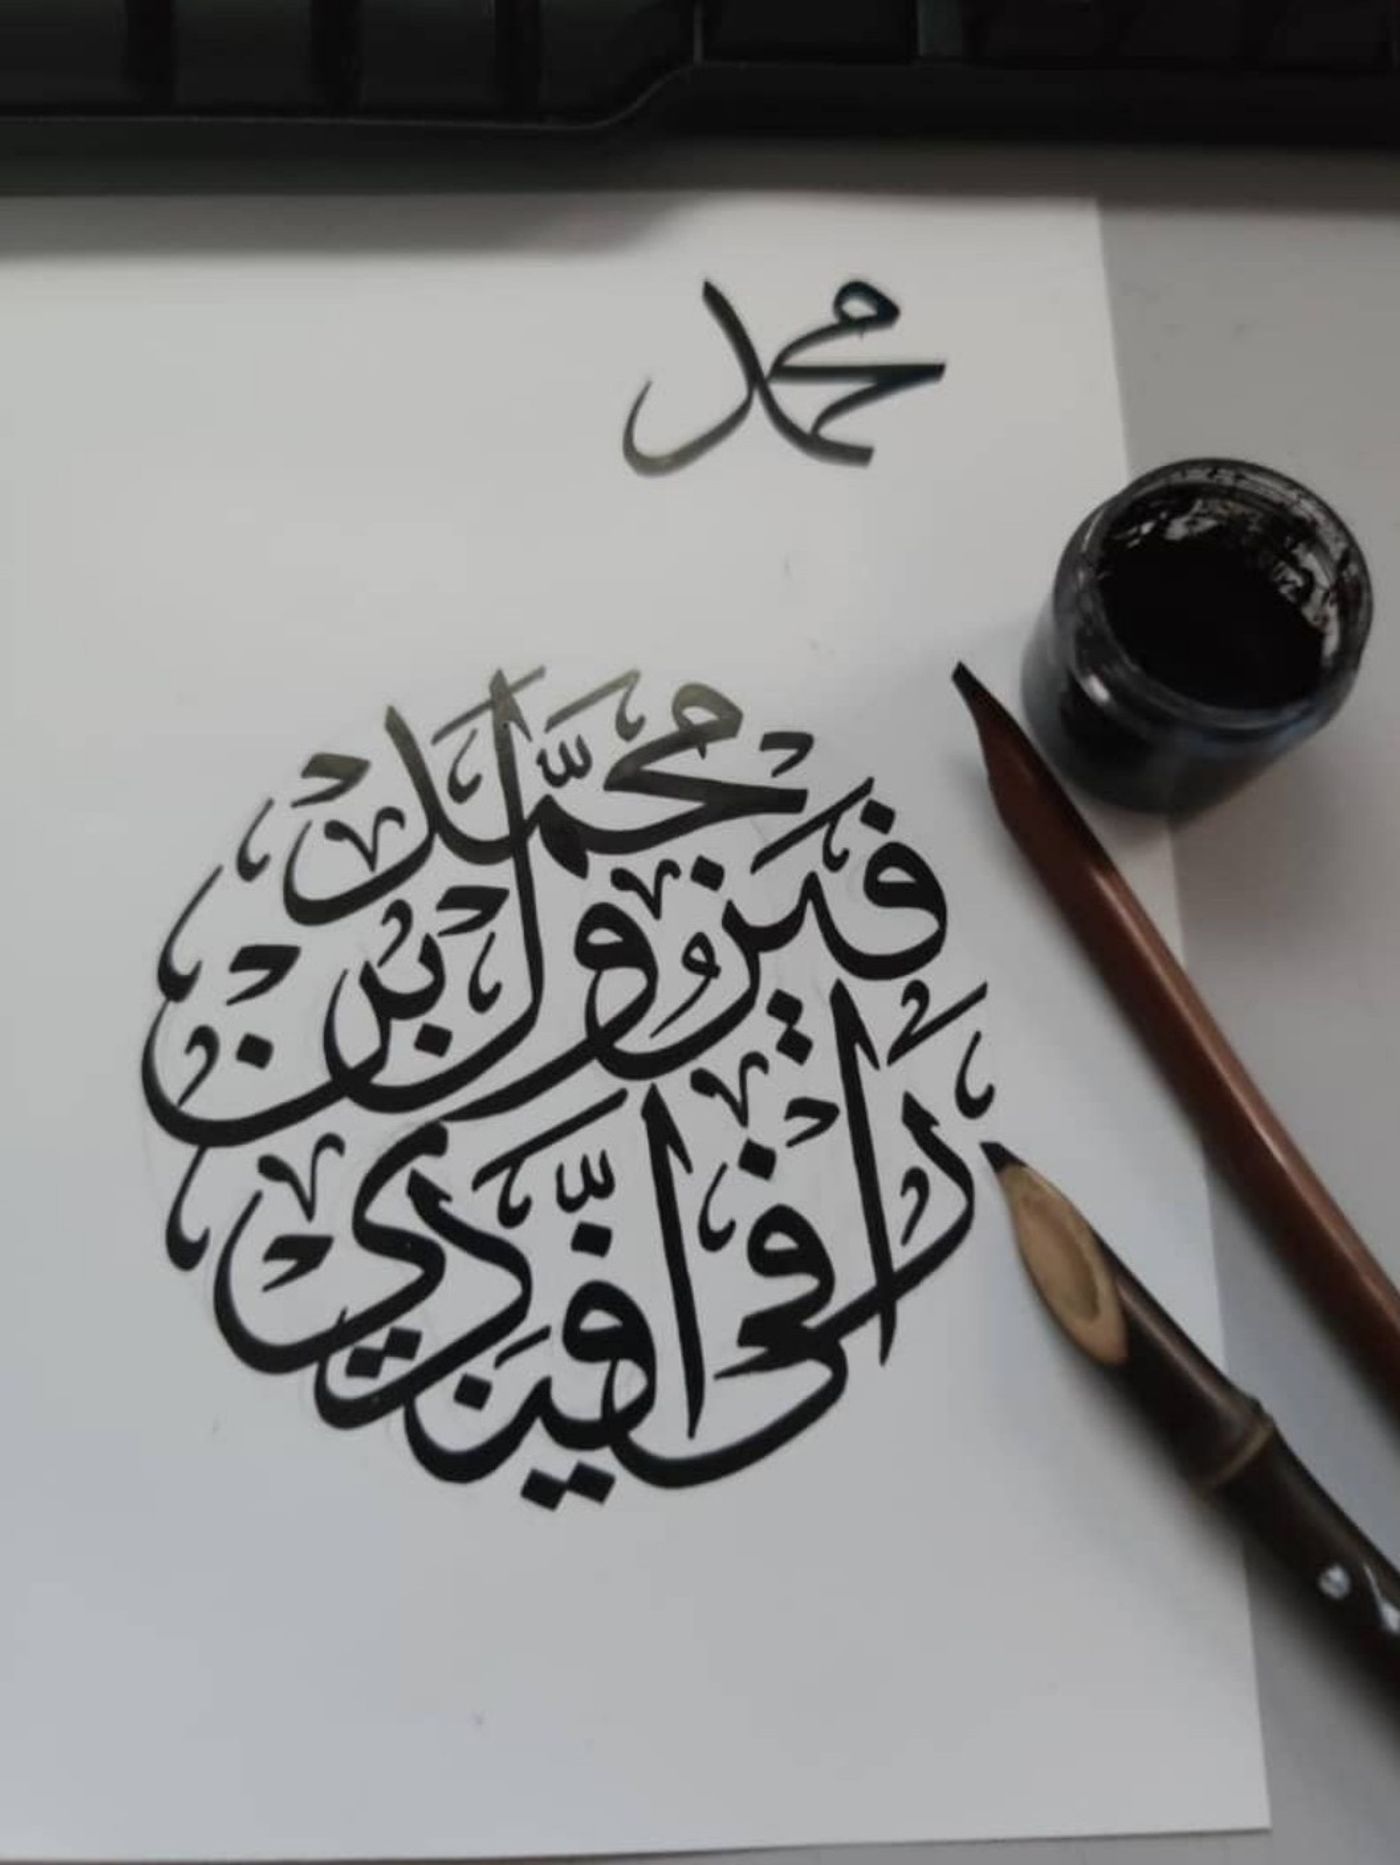 محمد
محمّد
فيزول بن
رافى افيندي